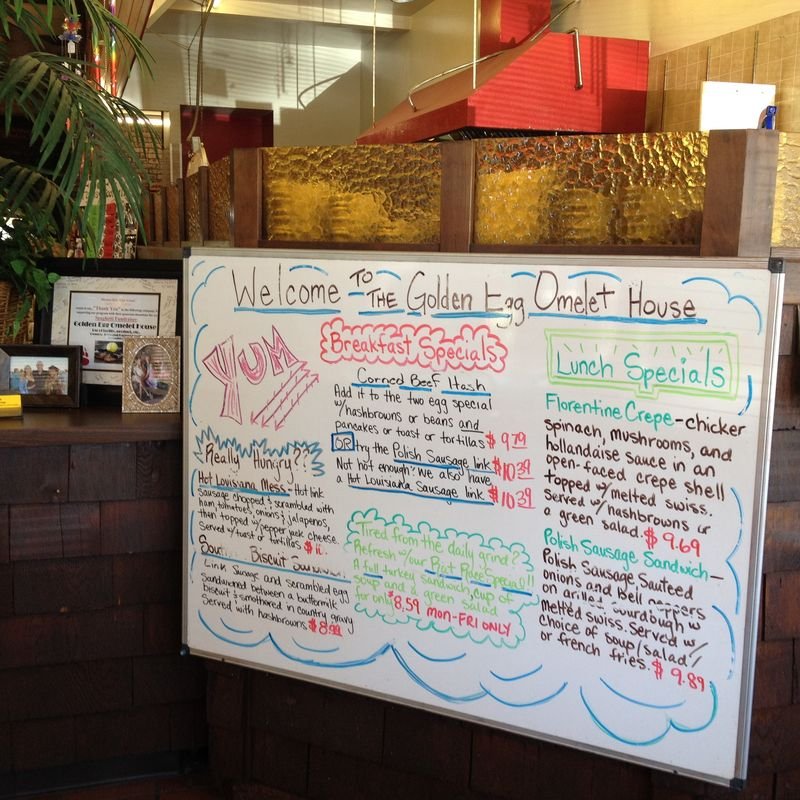 Welcome TO THE Golden Egg Omelet House
YUM
Breakfast Specials
Corned Beef Hash
Add it to the two egg special
w/hashbrowns or beans and
pancakes or toast or tortillas $9.79
OR try the Polish Sausage link $10.39
Not hot enough? We also have
a Hot Louisiana Sausage link $10.39
Really Hungry??
Hot Louisiana Mess - Hot link
Sausage chopped & scrambled with
ham, tomatoes, onions & jalapenos,
then topped w/pepper jack cheese.
Served w/toast or tortillas
Biscuit
Link Sausage and scrambled egg
Sandwiched between a buttermilk
biscuit & smothered in country gravy
Served with hashbrowns $8.99
Tired from the daily grind?
Refresh w/our Special!!
A full turkey sandwich, cup of
soup and a green salad
for only $8.59 MON-FRI ONLY
Lunch Specials
Florentine Crepe - chicken
spinach, mushrooms, and
hollandaise sauce in an
open-faced crepe shell
topped w/melted swiss.
Served w/hashbrowns or
a green salad. $9.69
Polish Sausage Sandwich -
Polish Sausage Sauteed
onions and Bell peppers
on grilled Sourdough w
melted Swiss. Served w/
choice of soup/salad/
or french fries. $9.89
Thank You
Spaghetti Fundraiser
Golden Egg Omelet House